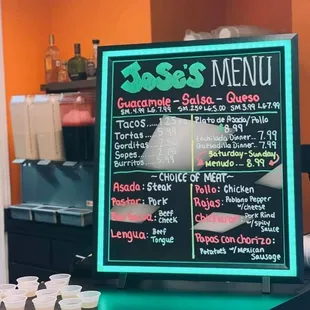 JoSe's MENU
Guacamole - Salsa - Queso
SM 4.99 LG 7.69 SM 2.50 LG 5.00 SM 3.99 LG 7.99
Tacos
Tortas
Gorditas
Sopes
Burritos
Plato de Asada/Pollo
8.99
Enchilada Dinner.. 7.99
Quesadilla Dinner.. 7.99
Saturday - Sunday
Menudo 8.99
~CHOICE OF MEAT~
Asada: Steak
Pastor: Pork
Barbacoa: Beef Cheek
Lengua: Beef Tongue
Pollo: Chicken
Rajas: Poblano Pepper w/cheese
Chicharron: Pork Rind w/spicy Sauce
Papas con chorizo:
Potatoes w/Mexican Sausage